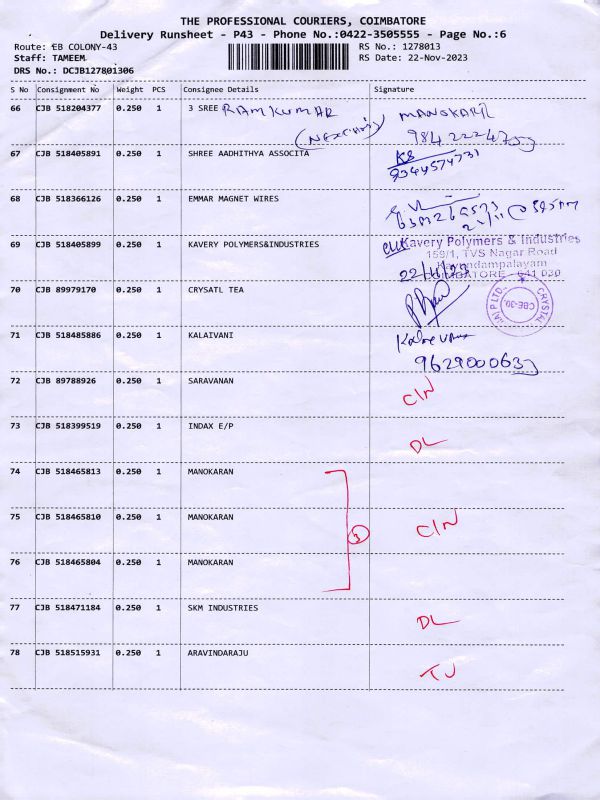 THE PROFESSIONAL COURIERS, COIMBATORE
Delivery Runsheet - P43 - Phone No.:0422-3505555 - Page No.:6
Route: EB COLONY-43 RS No.: 1278013
Staff: TAMEEM RS Date: 22-Nov-2023
DRS No.: DCJB127801306
S No Consignment No Weight PCS Consignee Details Signature
66 CJB 518204377 0.250 1 3 SREE RAMKUMAR
67 CJB 518405891 0.250 1 SHREE AADHITHYA ASSOCITA KS
9344574731
68 CJB 518366126 0.250 1 EMMAR MAGNET WIRES
69 CJB 518405899 0.250 1 KAVERY POLYMERS&INDUSTRIES Kavery Polymers & Industries
159/1, TVS Nagar Road
Kavundampalayam
COIMBATORE - 641 030
70 CJB 89979170 0.250 1 CRYSATL TEA CRYSTAL
CBE-30.
71 CJB 518485886 0.250 1 KALAIVANI
9629000633
72 CJB 89788926 0.250 1 SARAVANAN C/N
73 CJB 518399519 0.250 1 INDAX E/P DL
74 CJB 518465813 0.250 1 MANOKARAN
75 CJB 518465810 0.250 1 MANOKARAN 3 C/N
76 CJB 518465804 0.250 1 MANOKARAN
77 CJB 518471184 0.250 1 SKM INDUSTRIES DL
78 CJB 518515931 0.250 1 ARAVINDARAJU